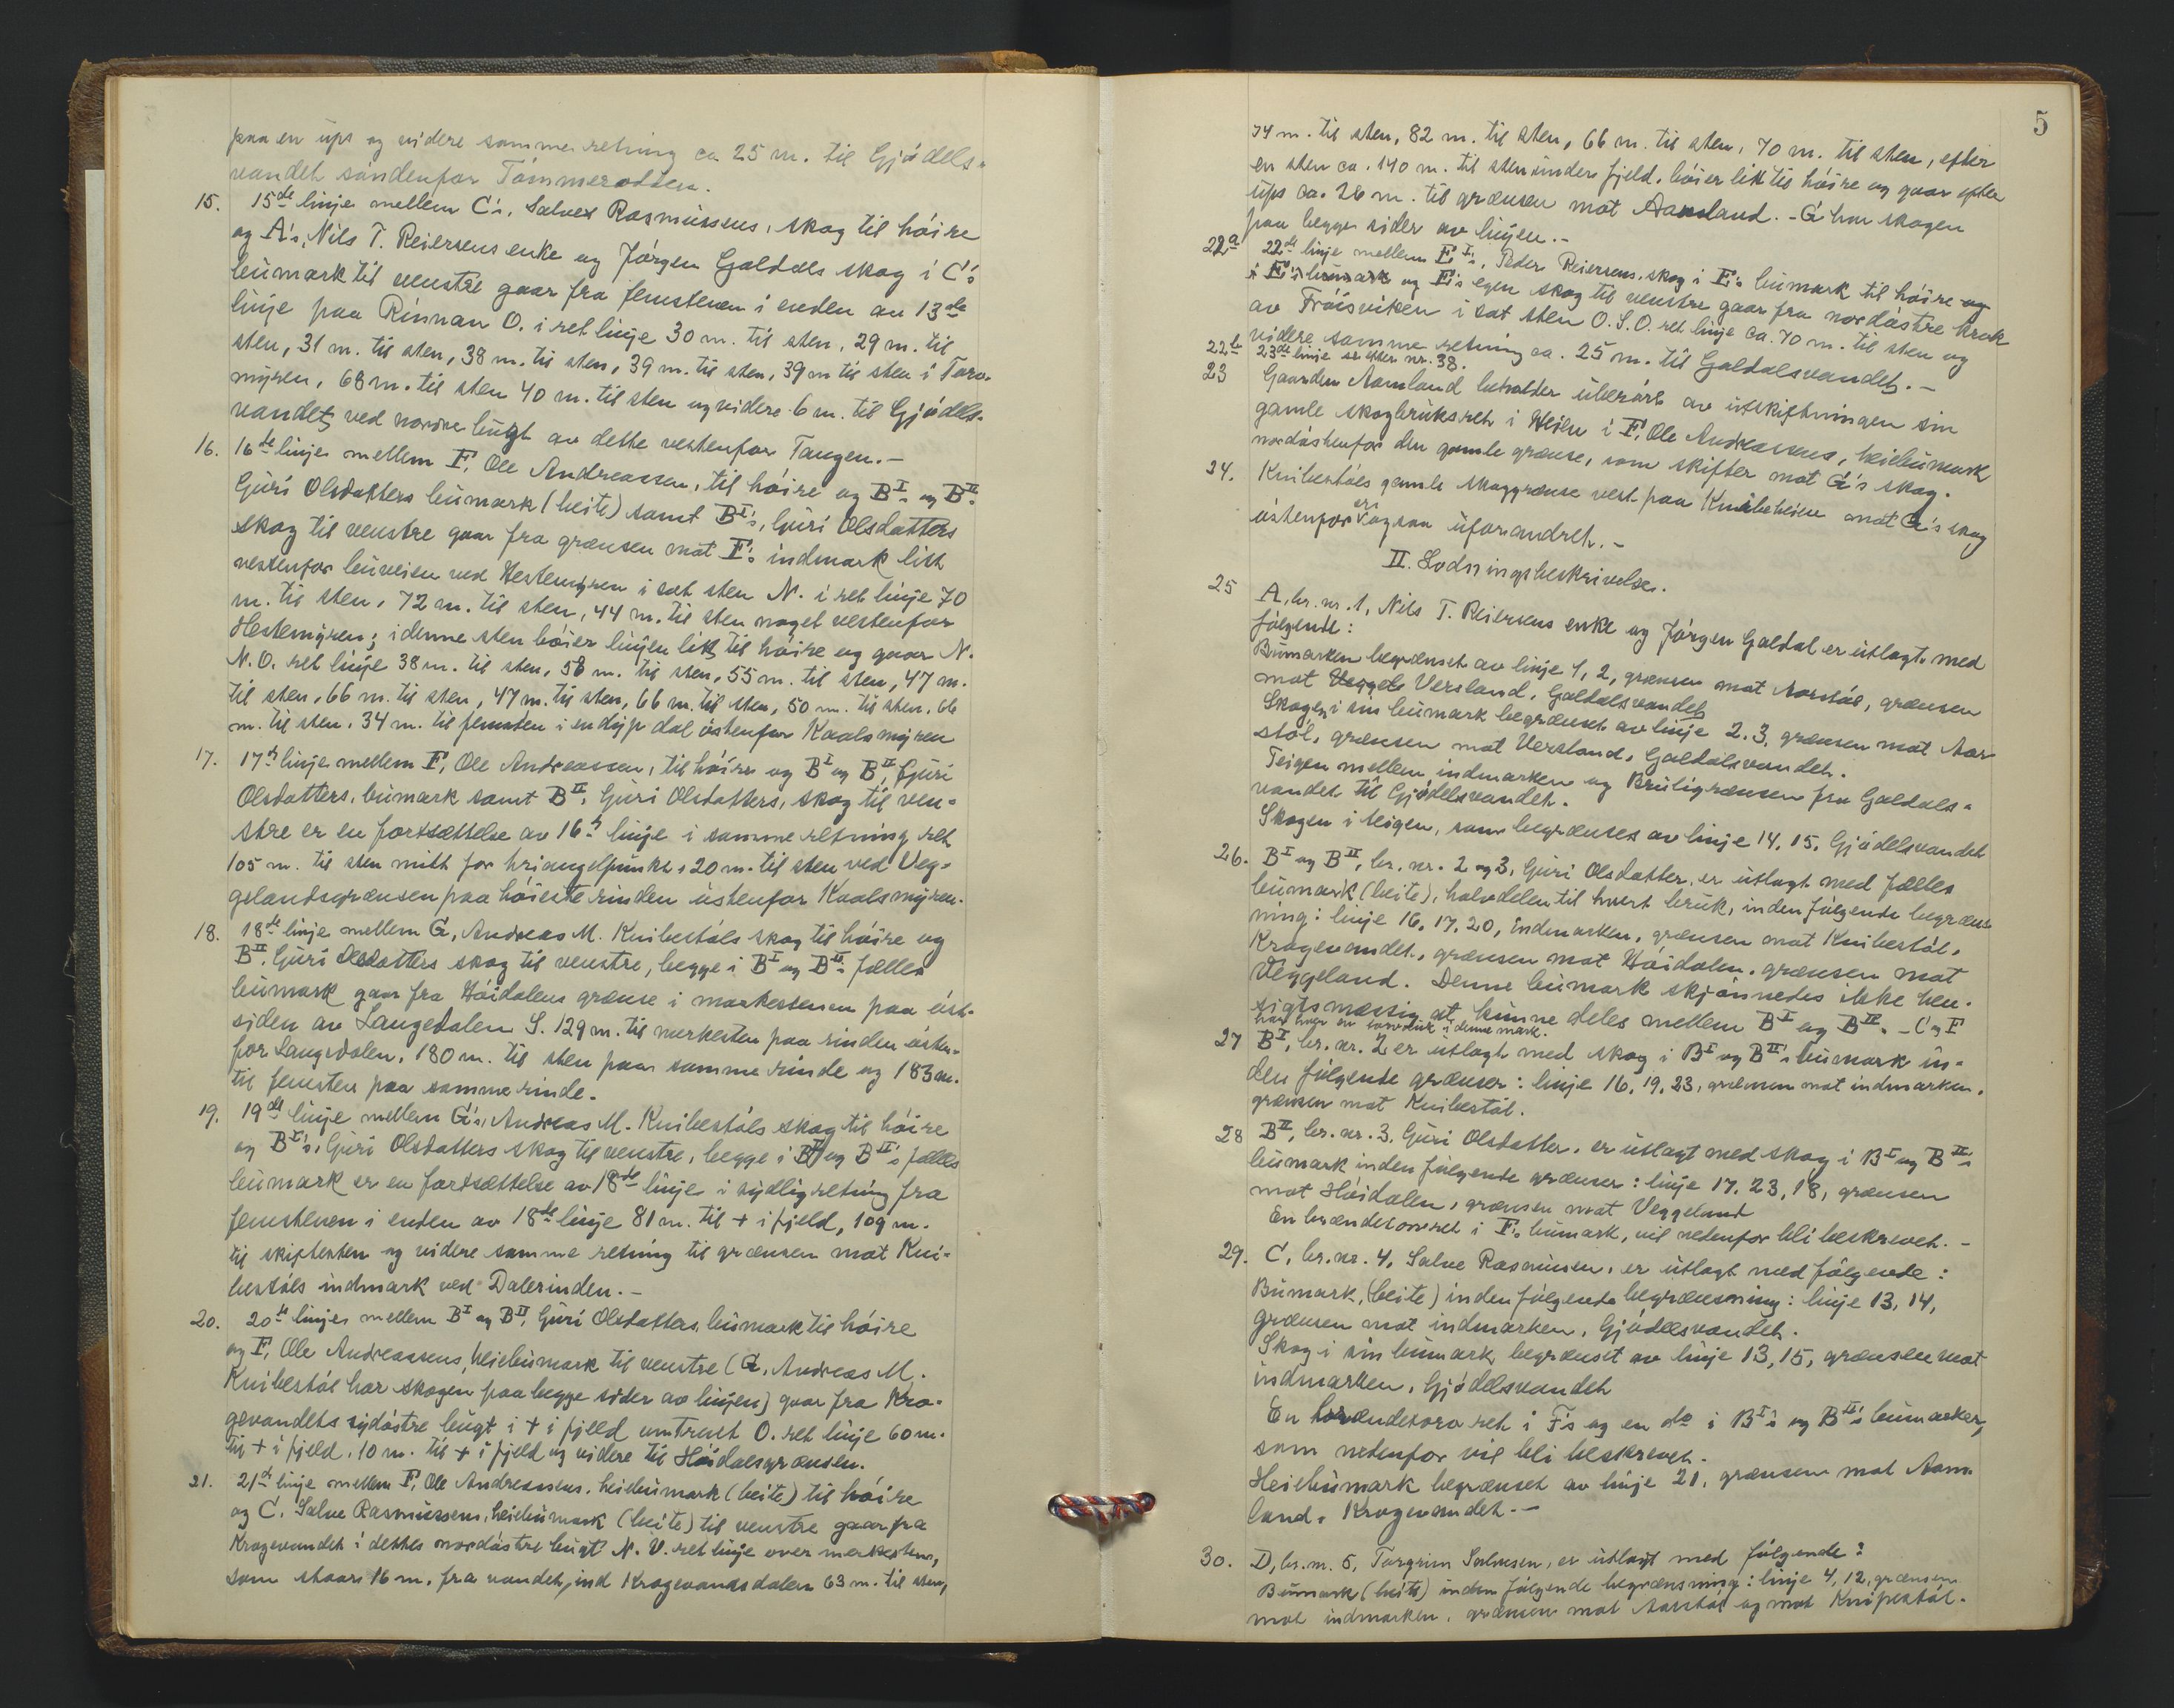 paa en ups og videre samme retning ca 25 m. til Gjødels-
vandet søndenfor Tømmerodden.
15. 15de linje mellem C's, Salve Rasmussens, skog til høire
og A's, Nils T. Reiersens enke og Jørgen Galdals skog i C's
bumark til venstre gaar fra femstenen i enden av 13de
linje paa Rinnan O. i ret linje 30 m. til sten, 29 m. til
sten, 31 m. til sten, 38 m. til sten, 39 m. til sten, 39 m til sten i Torv-
myren, 68 m. til sten 40 m. til sten og videre 6 m. til Gjødels-
vandet, ved nordre bugt av dette vestenfor Tangen.-
16. 16de linje mellem F, Ole Andreassen, til høire og BI's og BII's
Guri Olsdatters bumark (beite) samt BI's, Guri Olsdatters
skog til venstre gaar fra grænsen mot F's indmark litt
vestenfor buveien ved Hestemyren i sat sten N. i ret linje 70
m. til sten, 72 m. til sten, 44 m. til sten noget vestenfor
Hestemyren; i denne sten bøier linjen litt til høire og gaar N.
N. O. ret linje 38 m. til sten, 58 m. til sten, 55 m. til sten, 47 m.
til sten, 66 m. til sten, 47 m. til sten, 66 m. til sten, 50 m. til sten, 66
m. til sten, 34 m. til femsten i en dyp dal østenfor Kaalsmyren
17. 17de linje mellem F, Ole Andreassen, til høire og BI og BII, Guri
Olsdatters, bumark samt BII's Guri Olsdatters, skog til ven-
stre er en fortsættelse av 16de linje i samme retning ret
105 m. til sten mitt for triangelpunkt, 20 m. til sten ved Veg-
gelandsgrænsen paa høieste rinden østenfor Kaalsmyren.
18. 18de linje mellem G, Andreas M. Knibestøls skog til høire og
BII, Guri Olsdatters skog til venstre, begge i BI og BII's fælles
bumark gaar fra Høidalens grænse i merkestenen paa øst-
siden av Langedalen S. 129 m. til merkesten paa rinden østen-
for Langedalen, 180 m. til sten paa samme rinde og 183 m.
til femsten paa samme rinde.
19. 19de linje mellem G's, Andreas M. Knibestøls skog til høire
og BI's, Guri Olsdatters skog til venstre, begge i BI og BII's fælles
bumark er en fortsættelse av 18de linje i sydlig retning fra
femstenen i enden av 18de linje 81 m. til + i fjeld, 109 m.
til skiftesten og videre samme retning til grænsen mot Kni-
bestøls indmark ved Dalerinden.-
20. 20de linje mellem BI og BII, Guri Olsdatters, bumark til høire
og F, Ole Andreassens, heiebumark til venstre (G, Andreas M.
Knibestøl har skogen paa begge sider av linjen) gaar fra Kro-
gevandets sydøstre bugt i + i fjeld omtrent O. ret linje 60 m.
til + i fjeld, 10 m. til + i fjeld og videre til Høidalsgrænsen.
21. 21de linje mellem F, Ole Andreassens, heiebumark (beite) til høire
og C, Salve Rasmussens, heiebumark (beite) til venstre gaar fra
Krogevandet i dettes nordøstre bugt N. V. ret linje over merkesten,
som staar 16 m. fra vandet, ind Krogevandsdalen 63 m. til sten,
5
74 m. til sten, 82 m. til sten, 66 m. til sten, 70 m. til sten, efter
en sten ca. 140 m. til sten under fjeld, bøier litt til høire og gaar efter
ups ca. 26 m. til grænsen mot Aamland. - G har skogen
paa begge sider av linjen.-
22a 22de linje mellem EI's, Peder Reiersens, skog i E's bumark til høire og
i E's bumark og E's egen skog til venstre gaar fra nordøstre krok
av Frøisviken i sat sten O. S. O. ret linje ca. 70 m. til sten og
videre samme retning ca. 25 m. til Galdalsvandet.-
22b 23de linje se efter nr. 38.
23 Gaarden Aamland beholder uberørt av utskiftningen sin
gamle skogbruksret i Heien i F, Ole Andreassens, heiebumark
nordøstenfor den gamle grænse, som skifter mot G's skog.
24. Knibestøls gamle skoggrænse vest paa Knibeheien mot G's skog
østenfor er ogsaa uforandret.-
II. Lodningsbeskrivelse.
25 A, br. nr. 1, Nils T. Reiersens enke og Jørgen Galdal er utlagt med
følgende:
Bumarken begrænset av linje 1, 2, grænsen mot Aarstøl, grænsen
mot Veggel Versland, Galdalsvandet
Skogen i sin bumark begrænset av linje 2, 3, grænsen mot Aar-
støl, grænsen mot Versland, Galdalsvandet.
Teigen mellem indmarken og Bruligrænsen fra Galdals-
vandet til Gjødelsvandet.
Skogen i teigen, som begrænses av linje 14, 15, Gjødelsvandet
26. BI og BII, br. nr. 2 og 3, Guri Olsdatter, er utlagt med fælles
bumark (beite), halvdelen til hvert bruk, inden følgende begræns-
ning: linje 16, 17, 20, indmarken, grænsen mot Knibestøl,
Krogevandet, grænsen mot Høidalen, grænsen mot
Veggeland. Denne bumark skjønnedes ikke hen-
sigtsmæssig at kunne deles mellem BI og BII. - C og F
har hver en torvdisk i denne mark.
27 BI, br. nr. 2 er utlagt med skog i BI og BII's bumark in-
den følgende grænser: linje 16, 19, 23, grænsen mot indmarken,
grænsen mot Knibestøl.
28 BII, br. nr. 3, Guri Olsdatter, er utlagt med skog i BI og BII's
bumark inden følgende grænser: linje 17, 23, 18, grænsen
mot Høidalen, grænsen mot Veggeland
En brændetorvret i F's bumark, vil nedenfor bli beskrevet.-
29. C, br. nr. 4, Salve Rasmussen, er utlagt med følgende:
Bumark, (beite) inden følgende begrænsning: linje 13, 14,
grænsen mot indmarken, Gjødelsvandet.
Skog i sin bumark, begrænset av linje 13, 15, grænsen mot
indmarken, Gjødelsvandet
En brændetorvret i F's og en do i BI's og BII's bumarker,
som nedenfor vil bli beskrevet.
Heiebumark begrænset av linje 21, grænsen mot Aam-
land, Krogevandet.-
30. D, br. nr. 5, Torgrim Salvesen, er utlagt med følgende:
Bumark (beite) inden følgende begrænsning: linje 4, 12, grænsen
mot indmarken, grænsen mot Aarstøl og mot Knipestøl.